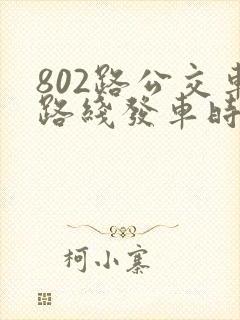 802路公交車
路綫發車時
柯小寨